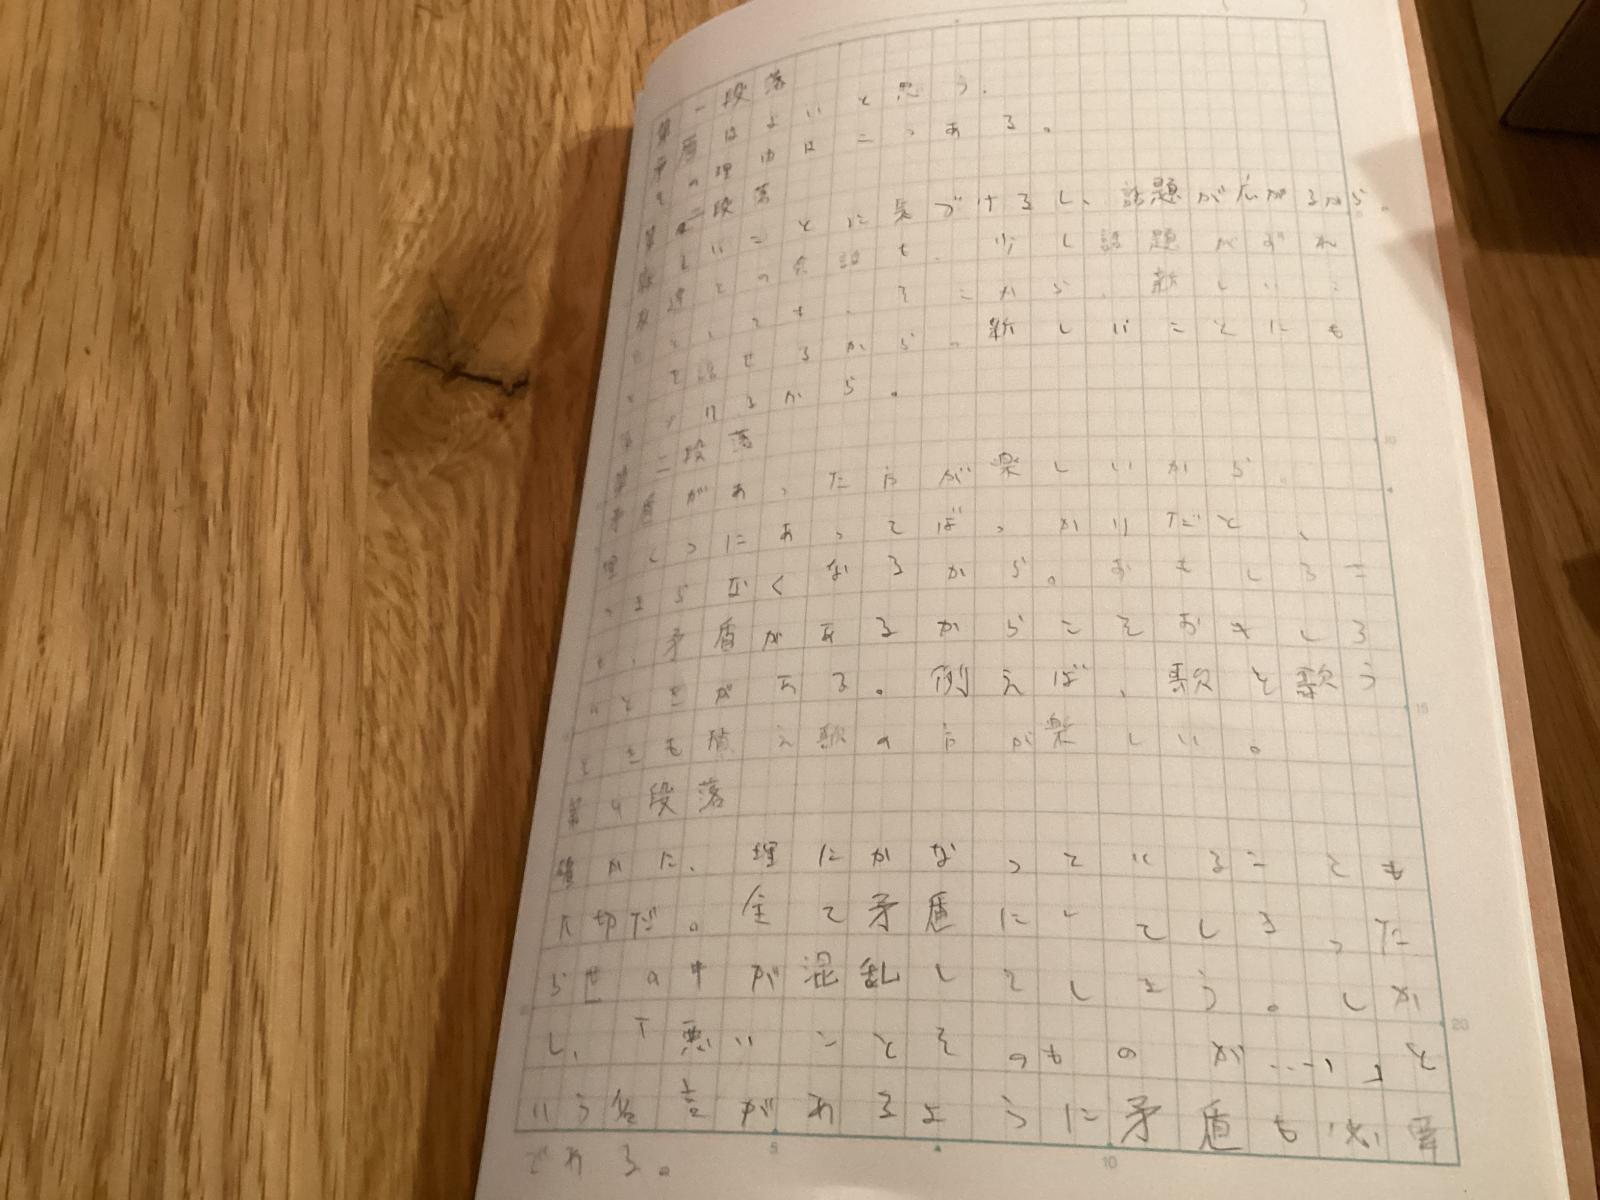 第一段落
矛盾はよいと思う。
その理由は二つある。
第二段落
新しいことに気づけるし、話題が広がるから。
友達との会話も、少し話題がずれ
たとしても、そこから、新しいこ
とを話せるから。新しいことにも
気づけるから。
第三段落
矛盾があった方が楽しいから。
つにあってばっかりだと、
つまらなくなるから。おもしろこ
も、矛盾があるからこそおもしろ
いときがある。例えば、歌を歌う
ときも替え歌の方が楽しい。
第4段落
確かに、理にかなっていることも
大切だ。全て矛盾にしてしまった
ら世の中が混乱してしまう。しか
し、「悪いことそのものが……」と
いう名言があるように矛盾も必要
である。